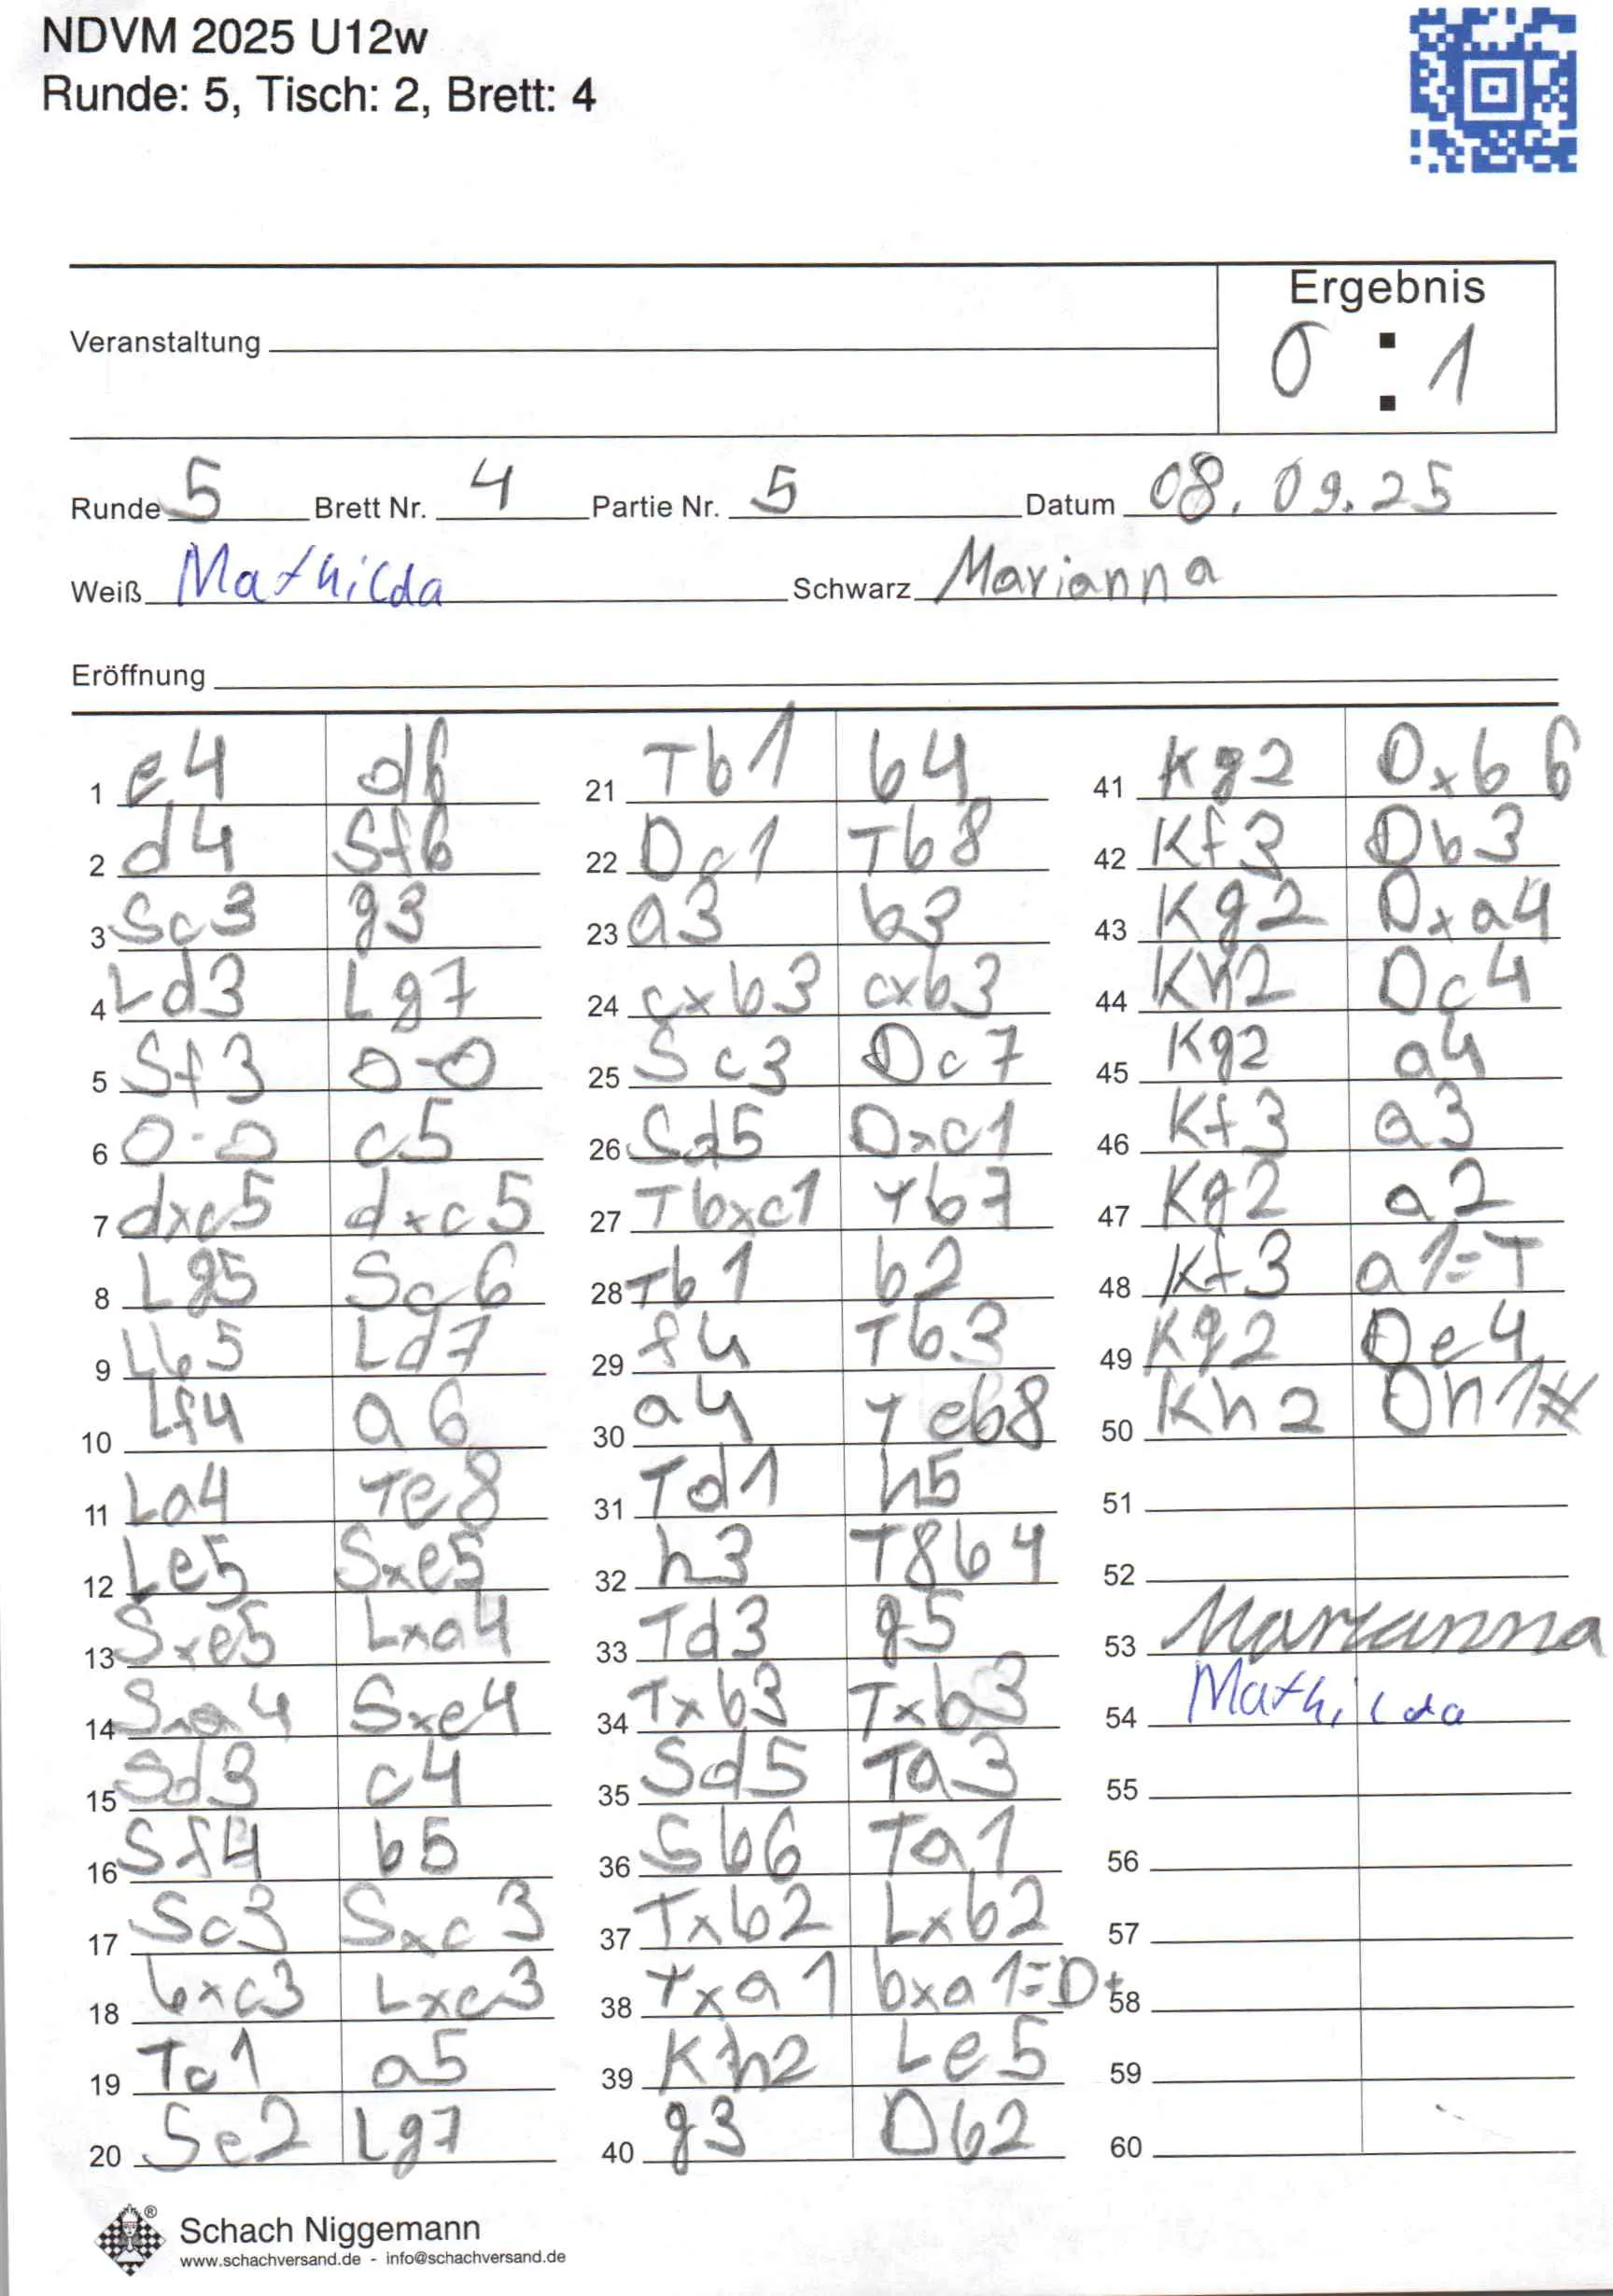 NDVM 2025 U12w
Runde: 5, Tisch: 2, Brett: 4
Ergebnis
Veranstaltung
0 : 1
Runde 5 Brett Nr. 4 Partie Nr. 5 Datum 08.09.25
Weiß Mathilda Schwarz Marianna
Eröffnung
1 e4 d6
2 d4 Sf6
3 Sc3 g3
4 Ld3 Lg7
5 Sf3 0-0
6 0-0 c5
7 dxc5 dxc5
8 Lg5 Sc6
9 Lb5 Ld7
10 Lf4 a6
11 La4 Te8
12 Le5 Sxe5
13 Sxe5 Lxa4
14 Sxa4 Sxe4
15 Sd3 c4
16 Sf4 b5
17 Sc3 Sxc3
18 bxc3 Lxc3
19 Tc1 a5
20 Se2 Lg7
21 Tb1 b4
22 Dc1 Tb8
23 a3 b3
24 cxb3 cxb3
25 Sc3 Dc7
26 Sd5 Dxc1
27 Tbxc1 Tb7
28 Tb1 b2
29 f4 Tb3
30 a4 Teb8
31 Td1 h5
32 h3 T8b4
33 Td3 g5
34 Txb3 Txb3
35 Sd5 Ta3
36 Sb6 Ta1
37 Txb2 Lxb2
38 Txa1 bxa1=D+
39 Kh2 Le5
40 g3 Db2
41 Kg2 Dxb6
42 Kf3 Db3
43 Kg2 Dxa4
44 Kh2 Dc4
45 Kg2 a4
46 Kf3 a3
47 Kg2 a2
48 Kf3 a1=T
49 Kg2 De4
50 Kh2 Dh1#
51
52
53 Marianna
54 Mathilda
55
56
57
58
59
60
Schach Niggemann
www.schachversand.de - info@schachversand.de